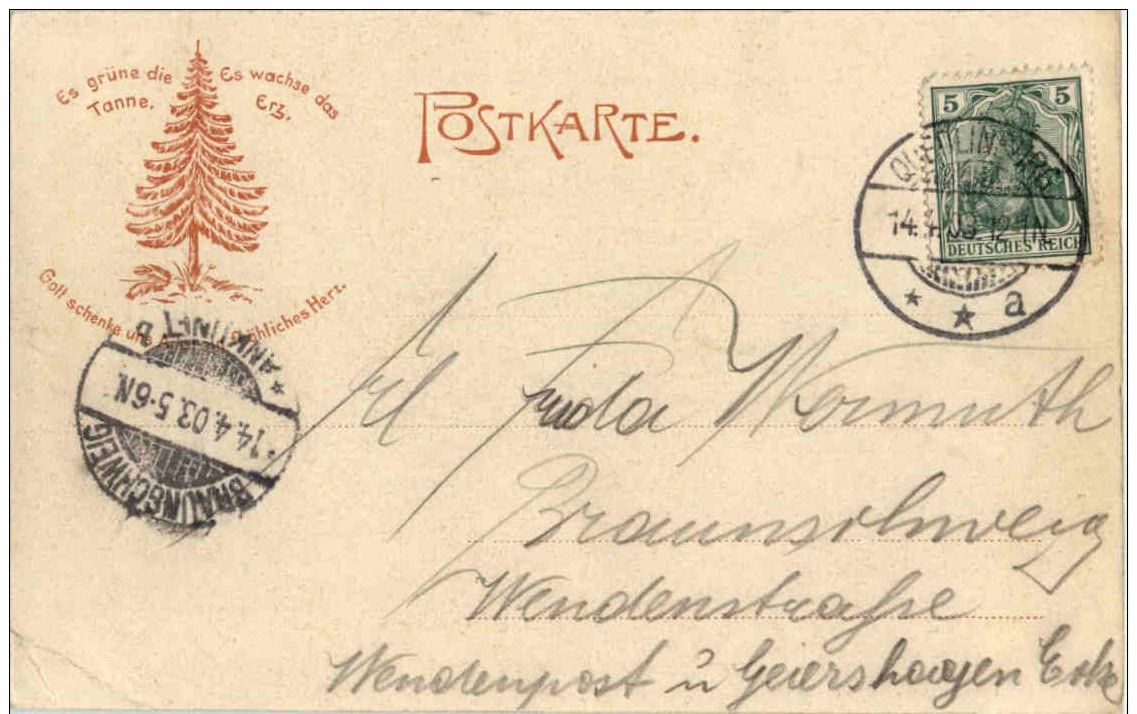 Es grüne die Tanne,
Es wachse das Erz,
Gott schenke uns fröhliches Herz.
POSTKARTE.
5 5
DEUTSCHES REICH
QUEDLINBURG
14.4.03 12-1N.
* * a
* ANKUNFT B
14.4.03. 5-6N.
BRAUNSCHWEIG
Frl Frida Wermuth
Braunschweig
Wendenstraße
Wendenpost u Geiershagen Ecke